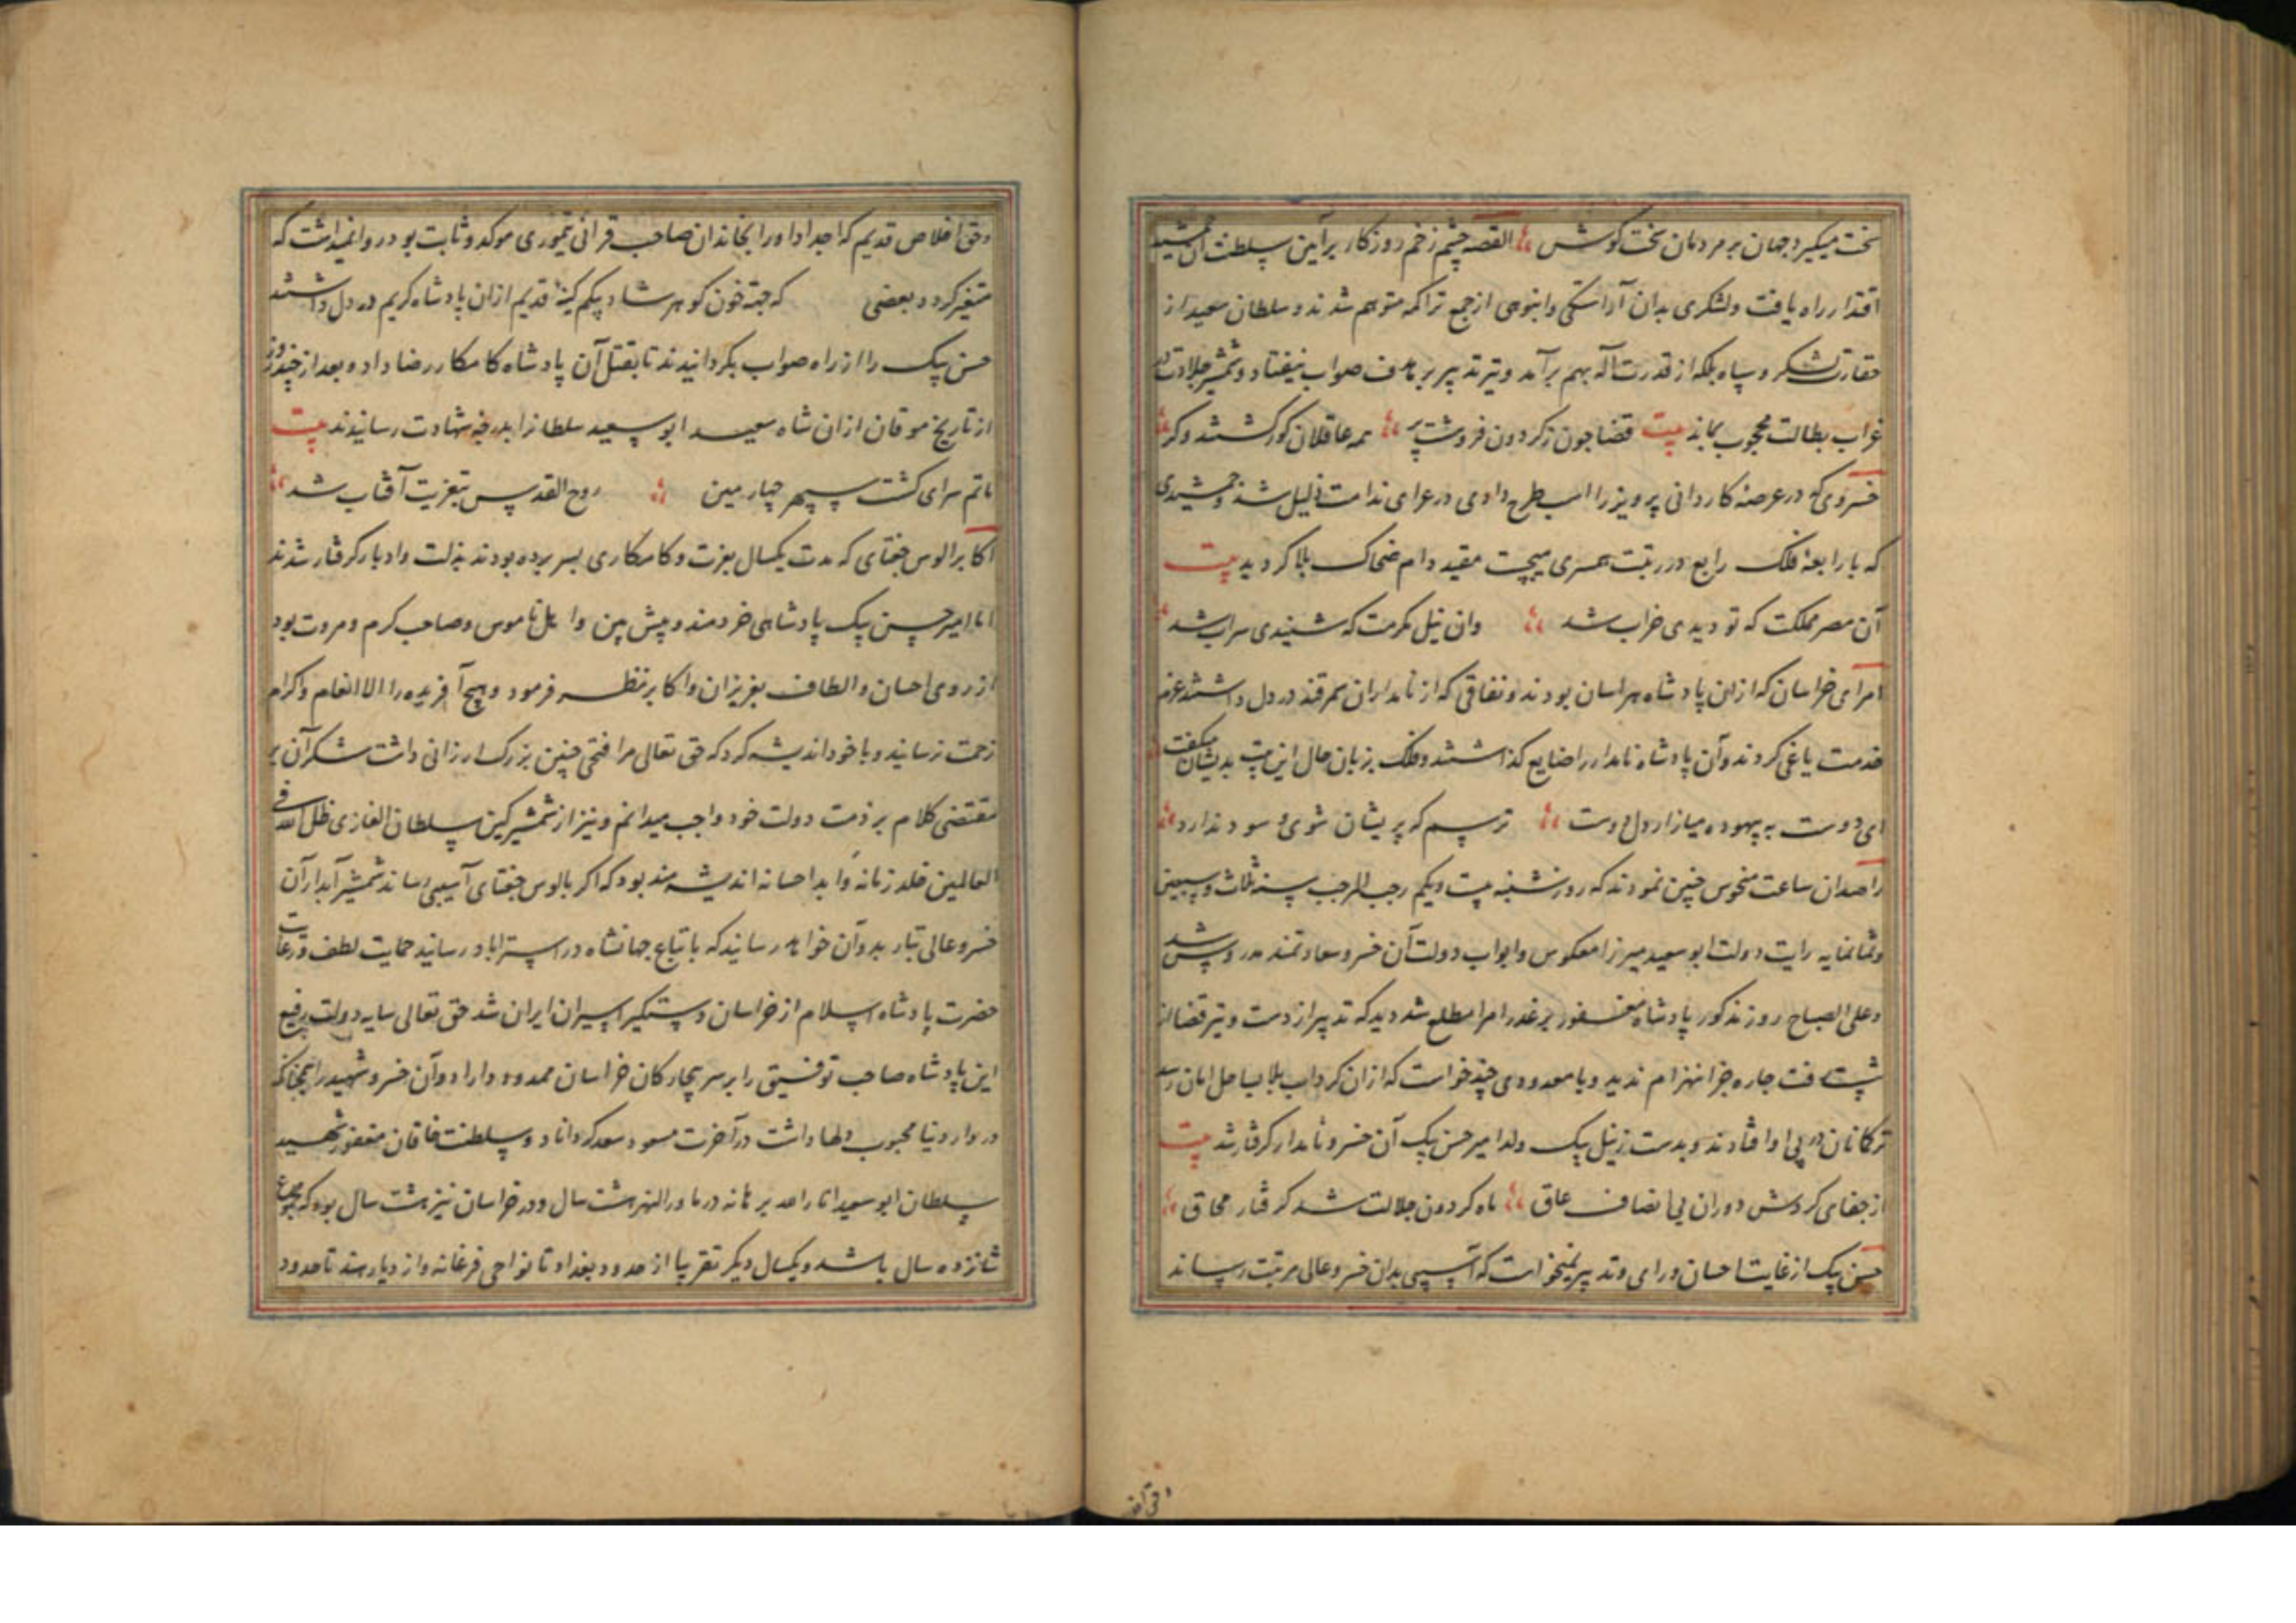 سخت میکیرد جهان بر مردمان سخت کوش القصه چشم زخم روزکار بر آیین سلطنت آن جمشید
اقتدار راه یافت ولشکری بدان آراستکی وانبوهی از جمع تراکمه متوهم شدند و سلطان سعید از
حقارت لشکر و سپاه بلکه از قدرت آله بهم برآمد و تیر تدبیر بر هدف صواب نیفتاد و شمشیر جلادت در
غراب بطالت محجوب بماند بیت قضا چون ز کردون فروهشت پر همه عاقلان کور کشتند و کر
خسروی که در عرصهٔ کاردانی پرویز را اسب طرح دادی در عرای ندامت ذلیل شد و جمشیدی
که با رابعهٔ فلک رابع در رتبت همسری میجست مقید دام ضحاک بلا کردید بیت
آن مصر مملکت که تو دیدی خراب شد وان نیل مکرمت که شنیدی سراب شد
امرای خراسان که ازان پادشاه هراسان بودند و نفاقی که از نامداران سمرقند در دل داشتند عزم
خدمت یاغی کردند وآن پادشاه نامدار را ضایع کذاشتند و فلک بزبان حال این بیت بدیشان میکفت
ای دوست به بیهوده میازار دل دوست ترسم که پریشان شوی و سود ندارد
راصدان ساعت منحوس چنین نمودند که روز شنبه بیست ویکم رجب المرجب سنه ثلث وسبعین
وثمانمایه رایت دولت ابو سعید میرزا معکوس وابواب دولت آن خسرو سعادتمند مدروس شد
وعلی الصباح روز مذکور پادشاه مغفور بر غدر امرا مطلع شد دید که تدبیر از دست و تیر قضا از
شست رفت چاره جز انهزام ندید و با معدودی چند خواست که ازان کرداب بلا بساحل امان رسد
ترکمانان در پی او افتادند و بدست زینل بیک ولد امیر حسن بیک آن خسرو نامدار کرفتار شد بیت
از جفای کردش دوران بی انصاف عاق ماه کردون جلالت شد کرفتار محاق
حسن بیک از غایت احسان ورای وتدبیر نمیخواست که آسیبی بدان خسرو عالی مرتبت رساند
وحق اخلاص قدیم که اجداد اورا بخاندان صاحب قرانی تیموری موکد وثابت بود روا نمیداشت که
متغیر کردد و بعضی که جهة خون کوهر شاد بیکم کینهٔ قدیم ازان پادشاه کریم در دل داشتند
حسن بیک را از راه صواب بکردانیدند تا بقتل آن پادشاه کامکار رضا داد و بعد از چند روز
از تاریخ موقان ازان شاه سعید ابو سعید سلطانرا بدرجهٔ شهادت رسانیدند بیت
ماتم سرای کشت سپهر چهارمین روح القدس بتعزیت آفتاب شد
اکابر الوس جغتای که مدت یکسال بعزت وکامکاری بسر برده بودند بذلت وادبار کرفتار شدند
اما امیر حسن بیک پادشاهی خردمند و پیش بین واهل ناموس وصاحب کرم ومروت بود
از روی احسان والطاف بعزیزان واکابر نظر فرمود وهیچ آفریده را الا انعام واکرام
زحمت نرسانید و با خود اندیشه کرد که حق تعالی مرا فتحی چنین بزرک ارزانی داشت شکر آن بر
مقتضی کلام بر ذمت دولت خود واجب میدانم و نیز از شمشیر کین سلطان الغازی ظل الله فی
العالمین خلد زمانه وابدا احسانه اندیشه مند بود که اکر بالوس جغتای آسیبی رساند شمشیر آبدار آن
خسرو عالی تبار بدوآن خواهد رسانید که باتباع جهانشاه در استراباد رسانید حمایت لطف ورعایت
حضرت پادشاه اسلام از خراسان دستکیر اسیران ایران شد حق تعالی سایه دولت رفیع
این پادشاه صاحب توفیق را بر سر بیچارکان خراسان ممدود داراد وآن خسرو شهید را همچنانکه
در دار دنیا محبوب دلها داشت در آخرت مسعود سعد کرداناد وسلطنت خاقان مغفور شهید
سلطان ابو سعید انار الله برهانه در ماورالنهر هشت سال ودر خراسان نیز هشت سال بود که مجموع
شانزده سال باشد ویکسال دیکر تقریبا از حدود بغداد تا نواحی فرغانه واز دیار هند تا حدود